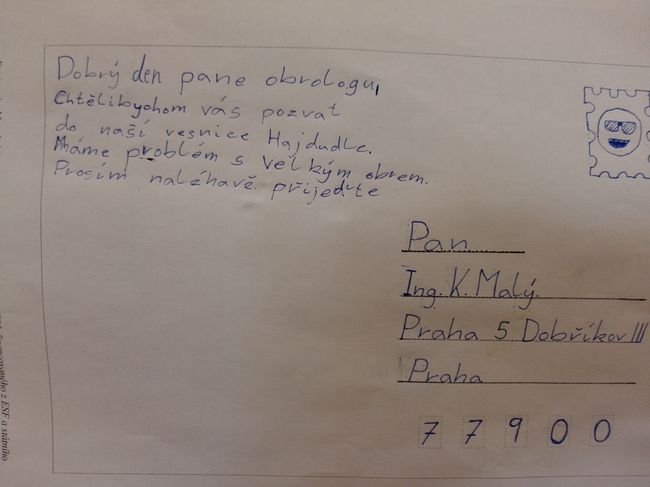 Dobrý den pane obrologu,
Chtělibychom vás pozvat
do naší vesnice Hajdudlc.
Máme problém s velkým obrem.
Prosím naléhavě přijeďte
Pan
Ing. K. Malý.
Praha 5 Dobříkov III
Praha
7 7 9 0 0
ancovaného z ESF a státního